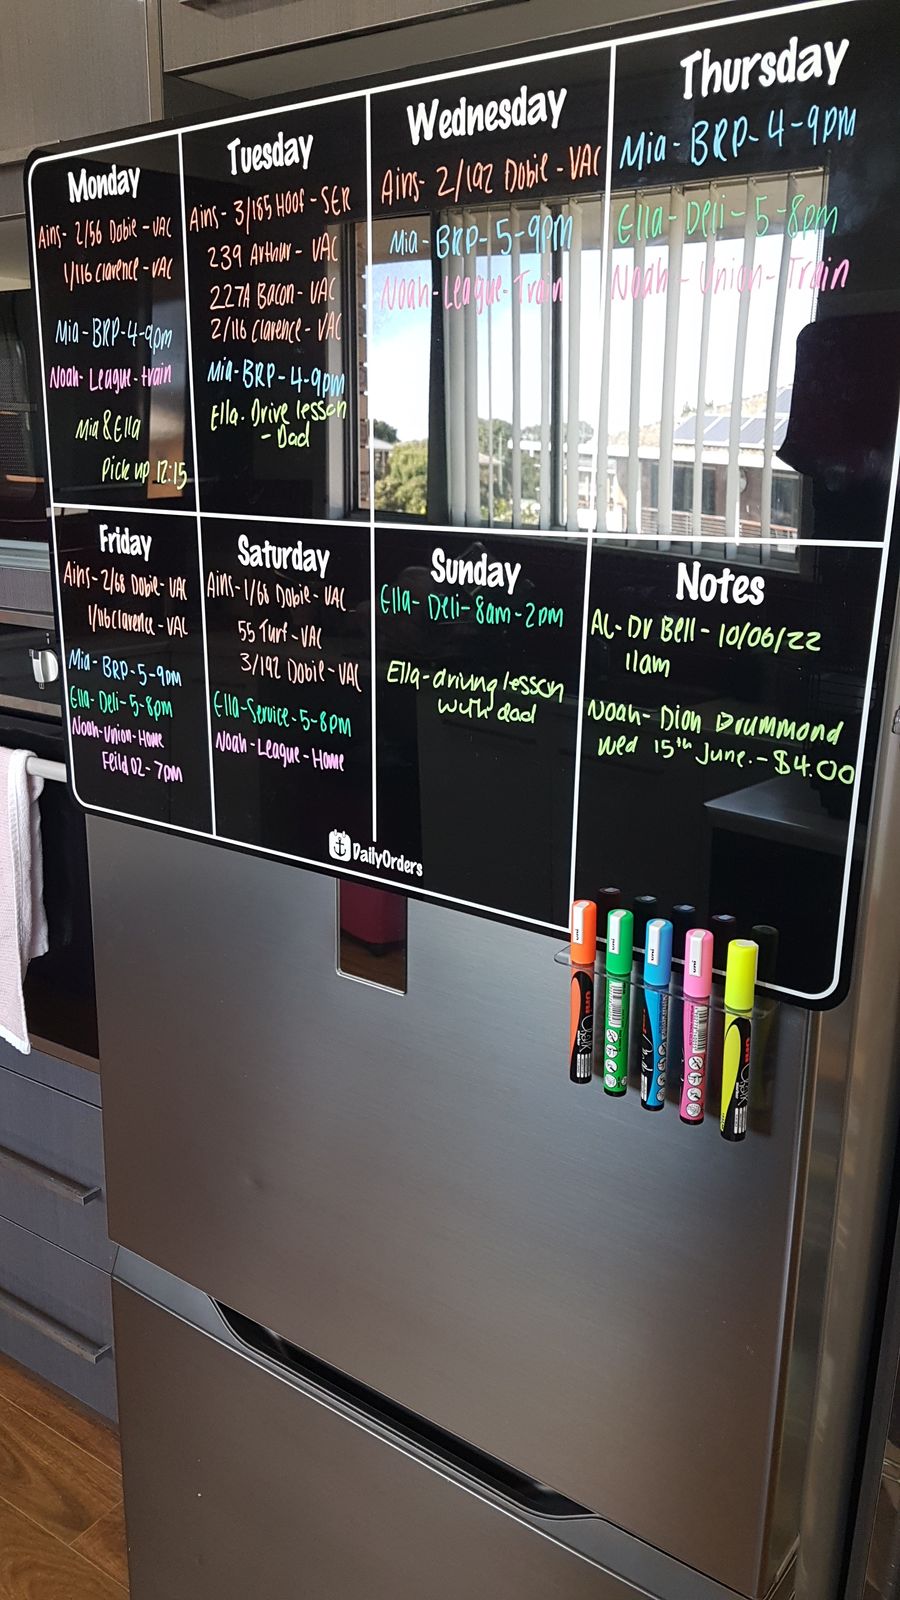 Monday
Ains- 2/56 Dobie-VAC
1/116 Clarence-VAC
Mia-BRP-4-9pm
Noah-League-train
Mia & Ella
Pick up 12:15
Tuesday
Ains- 3/185 Hoof-SER
239 Arthur-VAC
227A Bacon-VAC
2/116 Clarence-VAC
Mia-BRP-4-9pm
Ella. Drive lesson
- Dad
Wednesday
Ains- 2/192 Dobie-VAC
Mia-BRP-5-9pm
Noah-League-Train
Thursday
Mia-BRP-4-9pm
Ella-Deli-5-8pm
Noah-Union-Train
Friday
Ains-2/68 Dobie-VAC
1/116 Clarence-VAC
Mia-BRP-5-9pm
Ella-Deli-5-8pm
Noah-Union-Home
Feild 02-7pm
Saturday
Ains-1/68 Dobie-VAC
55 Turf-VAC
3/192 Dobie-VAC
Ella-Service-5-8pm
Noah-League-Home
Sunday
Ella-Deli-8am-2pm
Ella-driving lesson
with dad
Notes
AL-Dr Bell-10/06/22
11am
Noah-Dion Drummond
Wed 15th June.-$4.00
DailyOrders
uni
uni
uni
uni